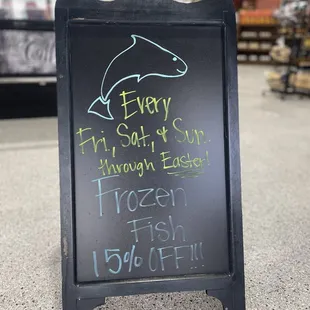 Every
Fri, Sat, & Sun
through Easter!
Frozen
Fish
15% OFF!!!